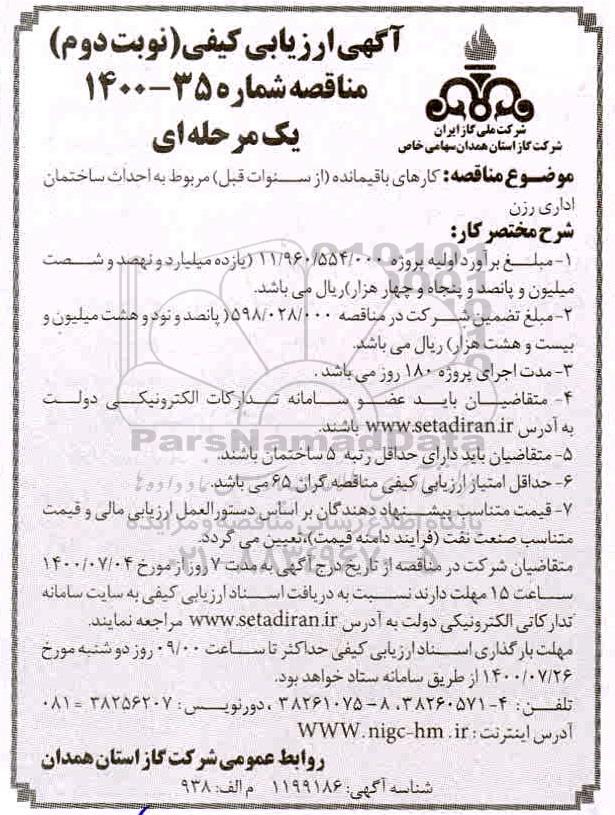 آگهی ارزیابی کیفی (نوبت دوم)
مناقصه شماره ۳۵-۱۴۰۰
یک مرحله ای
شرکت ملی گاز ایران
شرکت گاز استان همدان سهامی خاص
موضوع مناقصه: کارهای باقیمانده (از سنوات قبل) مربوط به احداث ساختمان
اداری رزن
شرح مختصر کار:
۱- مبلغ برآورد اولیه پروژه ۱۱/۹۶۰/۵۵۴/۰۰۰ (یازده میلیارد و نهصد و شصت
میلیون و پانصد و پنجاه و چهار هزار) ریال می باشد.
۲- مبلغ تضمین شرکت در مناقصه ۵۹۸/۰۲۸/۰۰۰ (پانصد و نود و هشت میلیون و
بیست و هشت هزار) ریال می باشد.
۳- مدت اجرای پروژه ۱۸۰ روز می باشد.
۴- متقاضیان باید عضو سامانه تدارکات الکترونیکی دولت
به آدرس www.setadiran.ir باشند.
ParsNamadData
۵- متقاضیان باید دارای حداقل رتبه ۵ ساختمان باشند.
۶- حداقل امتیاز ارزیابی کیفی مناقصه گران ۶۵ می باشد.
۷- قیمت متناسب پیشنهاد دهندگان بر اساس دستورالعمل ارزیابی مالی و قیمت
پایگاه اطلاع رسانی مناقصه و مزایده
متناسب صنعت نفت (فرایند دامنه قیمت)، تعیین می گردد.
متقاضیان شرکت در مناقصه از تاریخ درج آگهی به مدت ۷ روز از مورخ ۱۴۰۰/۰۷/۰۴
ساعت ۱۵ مهلت دارند نسبت به دریافت اسناد ارزیابی کیفی به سایت سامانه
تدارکاتی الکترونیکی دولت به آدرس www.setadiran.ir مراجعه نمایند.
مهلت بارگذاری اسناد ارزیابی کیفی حداکثر تا ساعت ۰۹/۰۰ روز دوشنبه مورخ
۱۴۰۰/۰۷/۲۶ از طریق سامانه ستاد خواهد بود.
تلفن: ۴-۳۸۲۶۰۵۷۱، ۸-۳۸۲۶۱۰۷۵، دورنویس: ۳۸۲۵۶۲۰۷ = ۰۸۱
آدرس اینترنت: WWW. nigc-hm .ir
روابط عمومی شرکت گاز استان همدان
شناسه آگهی: ۱۱۹۹۱۸۶ م الف: ۹۳۸